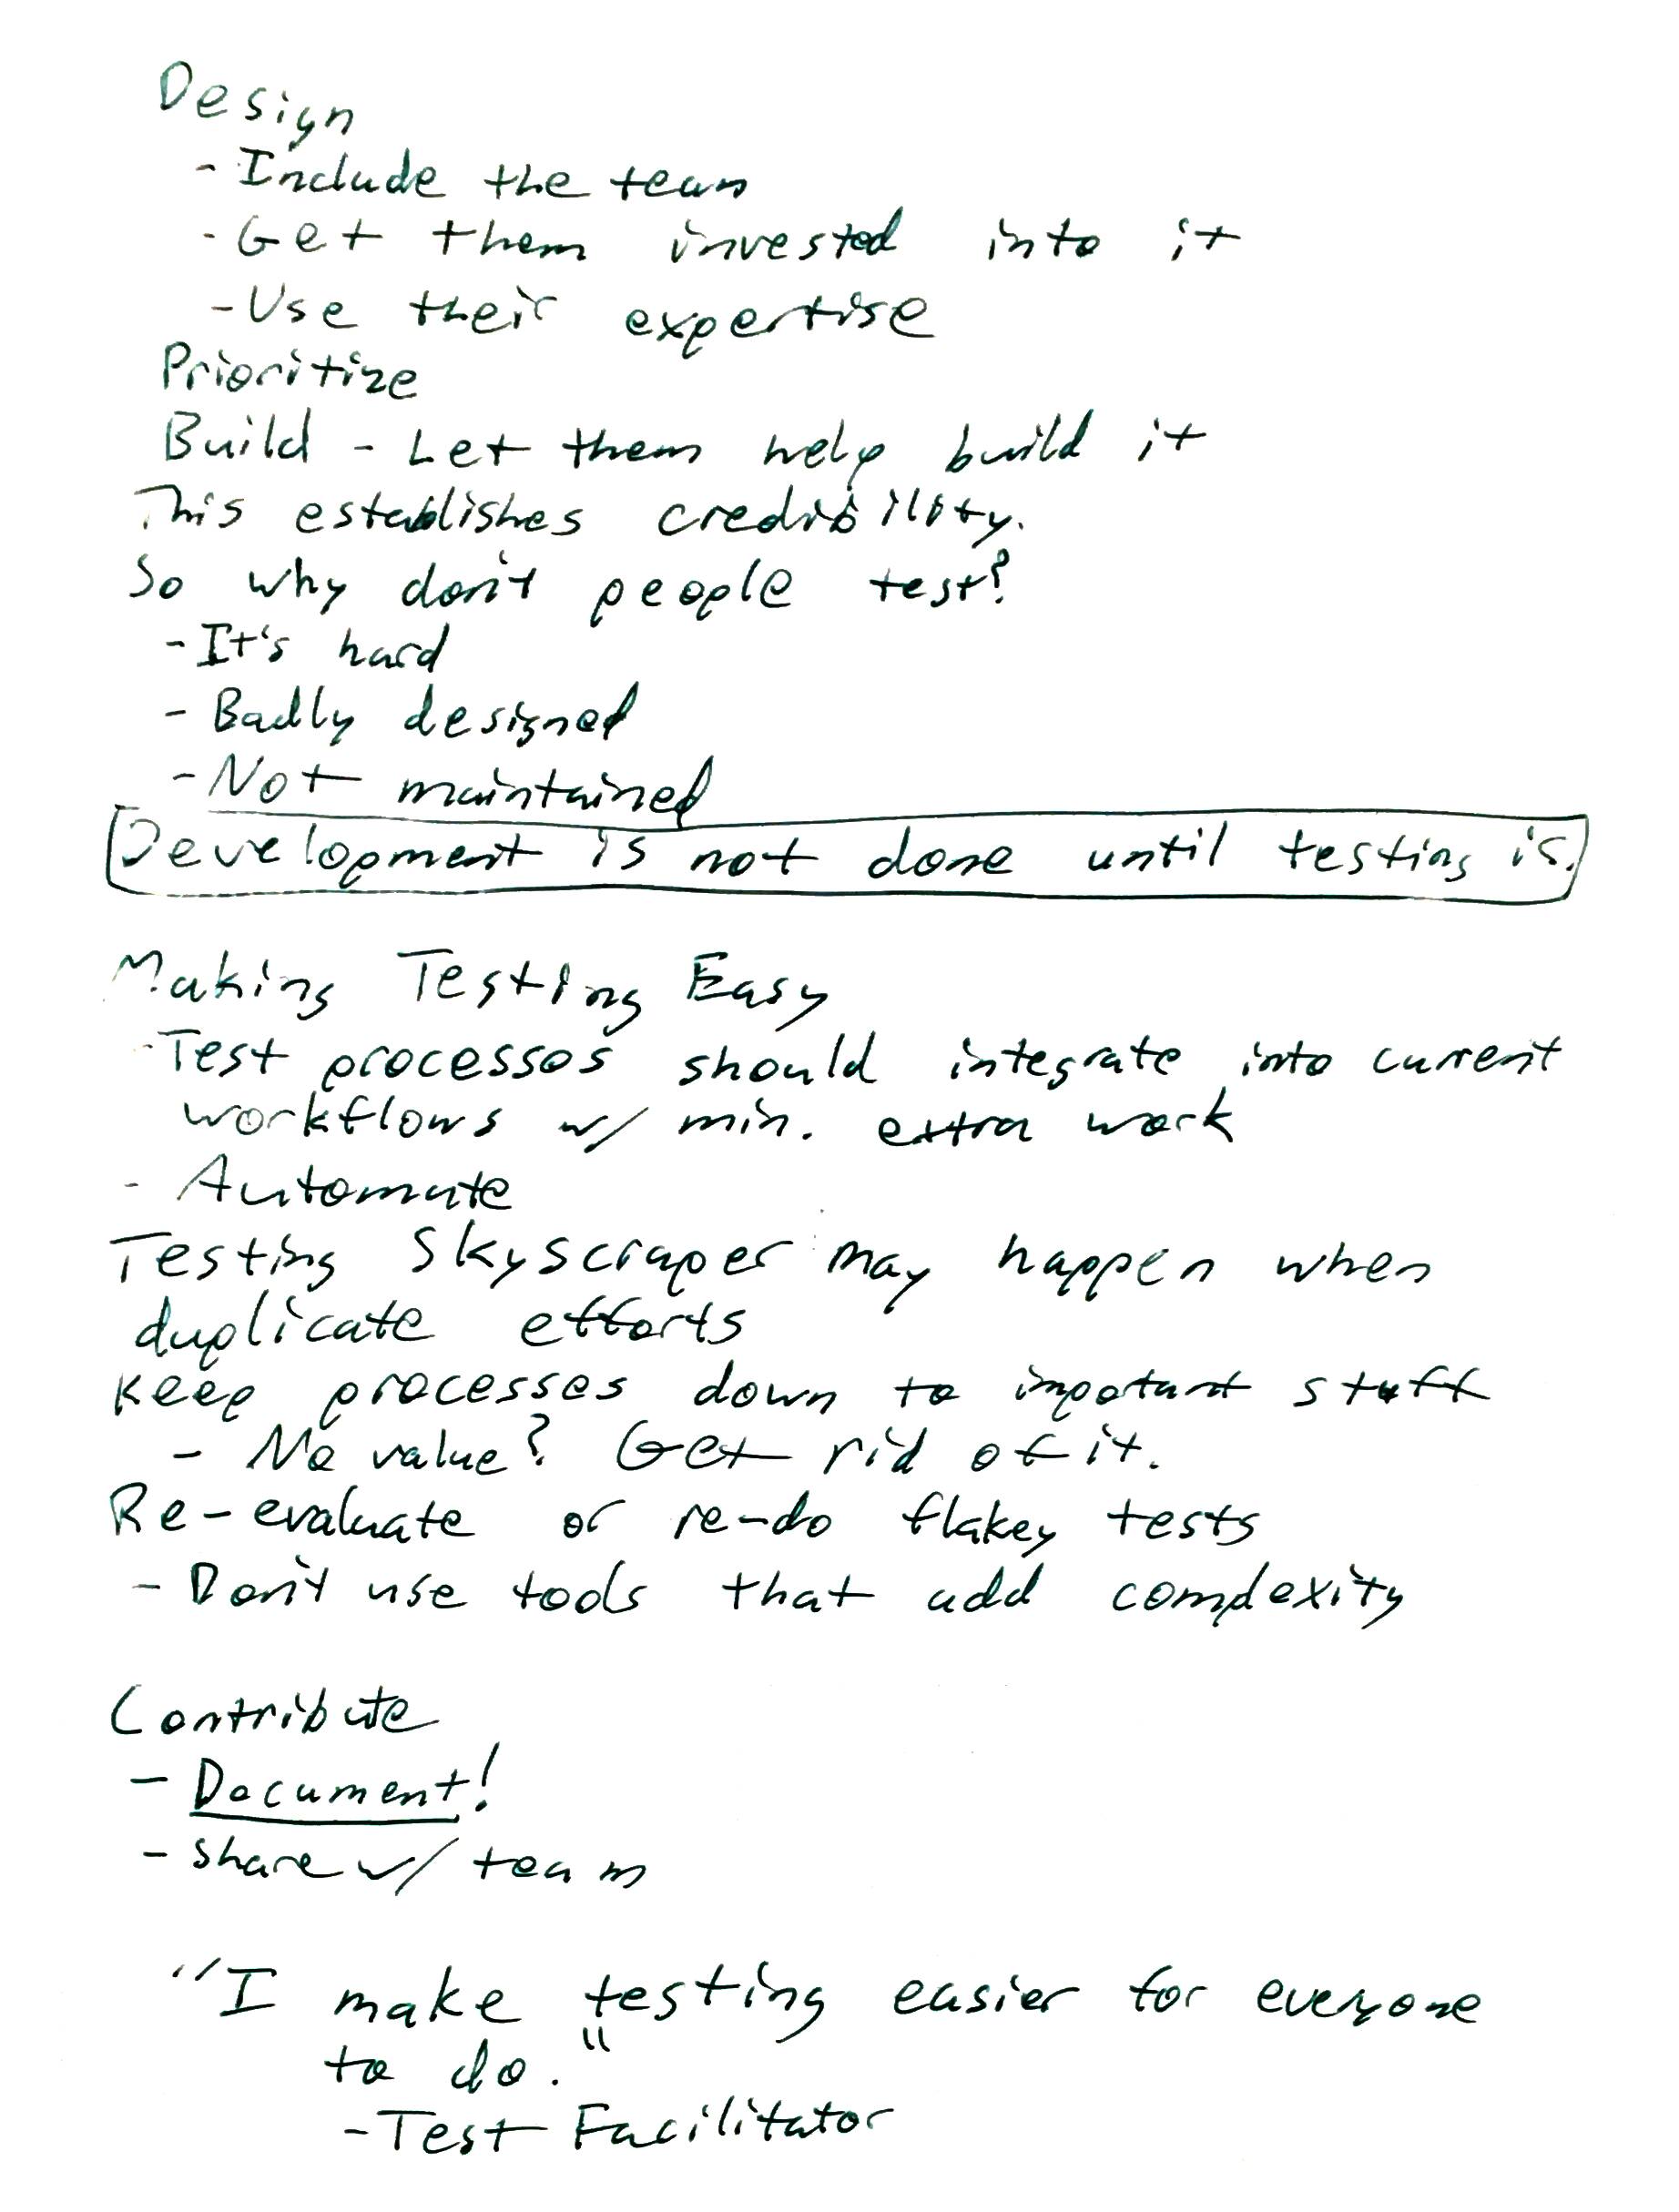 Design
- Include the team
- Get them invested into it
- Use their expertise
Prioritize
Build - Let them help build it
This establishes credibility.
So why don't people test?
- It's hard
- Badly designed
- Not maintained
Development is not done until testing is.
Making Testing Easy
- Test processes should integrate into current
workflows w/ min. extra work
- Automate
Testing Skyscraper may happen when
duplicate efforts
Keep processes down to important stuff
- No value? Get rid of it.
Re-evaluate or re-do flakey tests
- Don't use tools that add complexity
Contribute
- Document!
- Share w/ team
"I make testing easier for everyone
to do."
- Test Facilitator